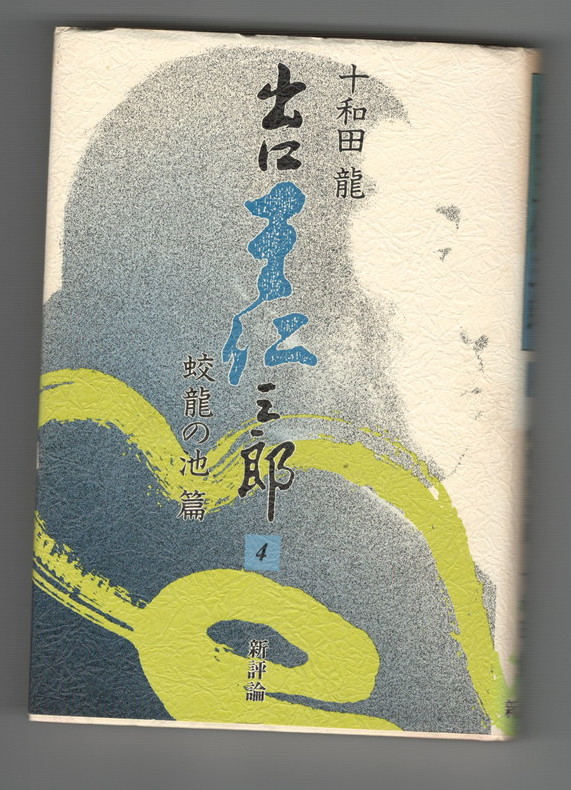 十和田 龍
出口王仁三郎
蛟龍の池 篇
4
新評論
新